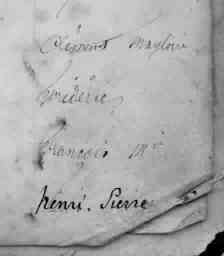 Clément Magloire
Frédéric
François M
henri. Pierre